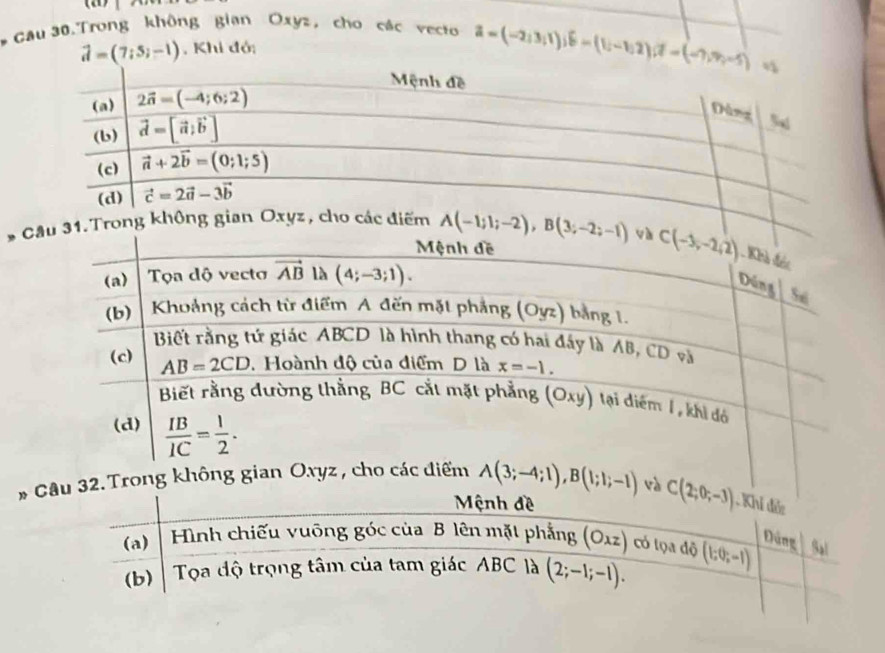 » Câu 30.Trong không gian Oxyz, cho các vecto a⃗ = (-2;3;1); b⃗ = (1;-1;2); c⃗ = (-7;9;-5) và
d⃗ = (7;5;-1). Khi đó:
Mệnh đề Đúng Sai
(a) 2a⃗ = (-4;6;2)
(b) d⃗ = [a⃗;b⃗]
(c) a⃗ + 2b⃗ = (0;1;5)
(d) c⃗ = 2a⃗ - 3b⃗
» Câu 31.Trong không gian Oxyz, cho các điểm A(-1;1;-2), B(3;-2;-1) và C(-3;-2;2). Khi đó:
Mệnh đề Đúng Sai
(a) Tọa độ vecto AB⃗ là (4;-3;1).
(b) Khoảng cách từ điểm A đến mặt phẳng (Oyz) bằng 1.
Biết rằng tứ giác ABCD là hình thang có hai đáy là AB, CD và
(c) AB = 2CD. Hoành độ của điểm D là x = -1.
Biết rằng đường thẳng BC cắt mặt phẳng (Oxy) tại điểm I, khi đó
(d) IB/IC = 1/2.
» Câu 32.Trong không gian Oxyz, cho các điểm A(3;-4;1), B(1;1;-1) và C(2;0;-3). Khi đó:
Mệnh đề Đúng Sai
(a) Hình chiếu vuông góc của B lên mặt phẳng (Oxz) có tọa độ (1;0;-1)
(b) Tọa độ trọng tâm của tam giác ABC là (2;-1;-1).